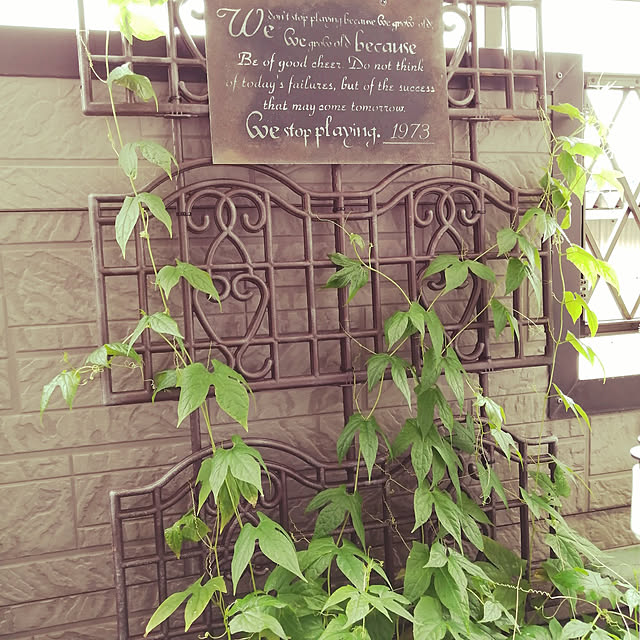 We don't stop playing because we grow old,
We grow old because
Be of good cheer. Do not think
of today's failures, but of the success
that may come tomorrow.
We stop playing. 1973